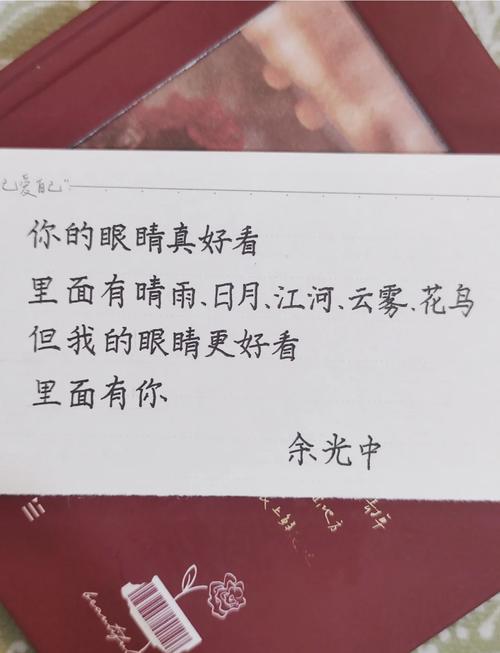 己爱自己"
你的眼睛真好看
里面有晴雨、日月、江河、云雾、花鸟
但我的眼睛更好看
里面有你
余光中